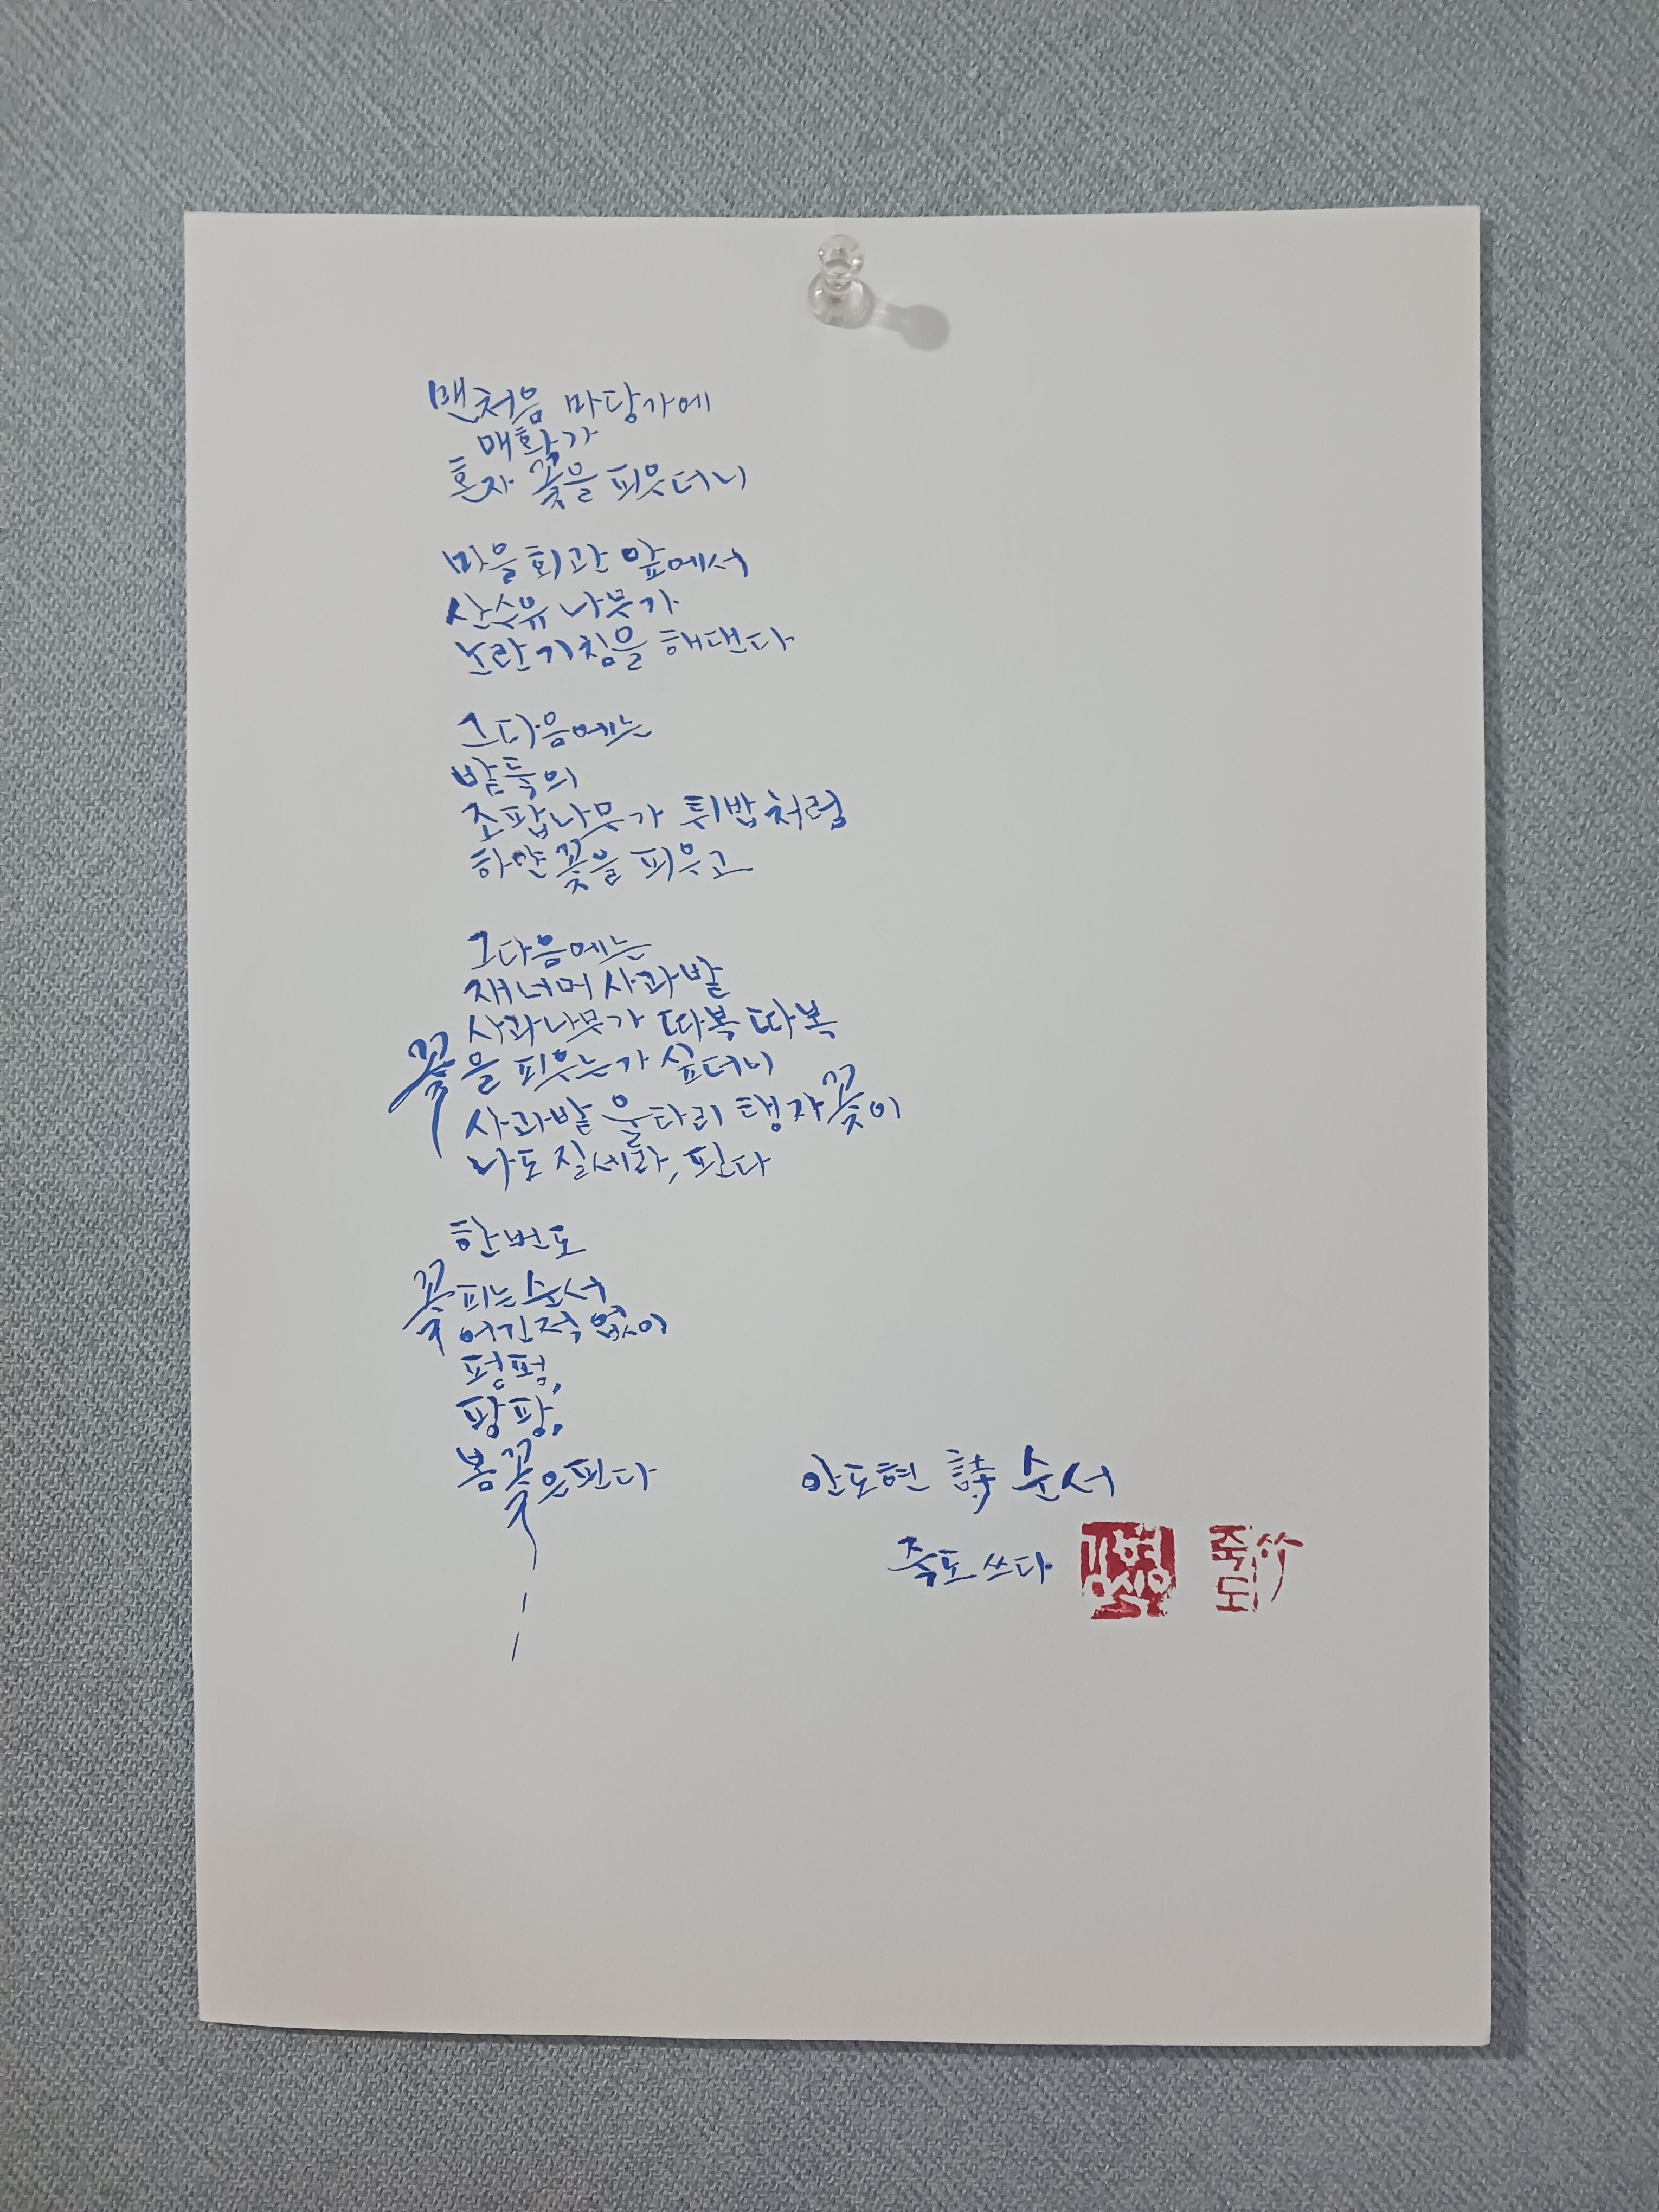 맨처음 마당가에
매화가
혼자 꽃을 피우더니
마을회관 앞에서
산수유 나무가
노란기침을 해댄다
그다음에는
밭둑의
조팝나무가 튀밥처럼
하얀꽃을 피우고
그다음에는
재너머 사과밭
사과나무가 따복따복
꽃을 피우는가 싶더니
사과밭 울타리 탱자꽃이
나도 질세라, 핀다
한번도
꽃피는순서
어긴적 없이
펑펑,
팡팡,
봄꽃은핀다
안도현 詩 순서
죽도 쓰다
죽도 竹